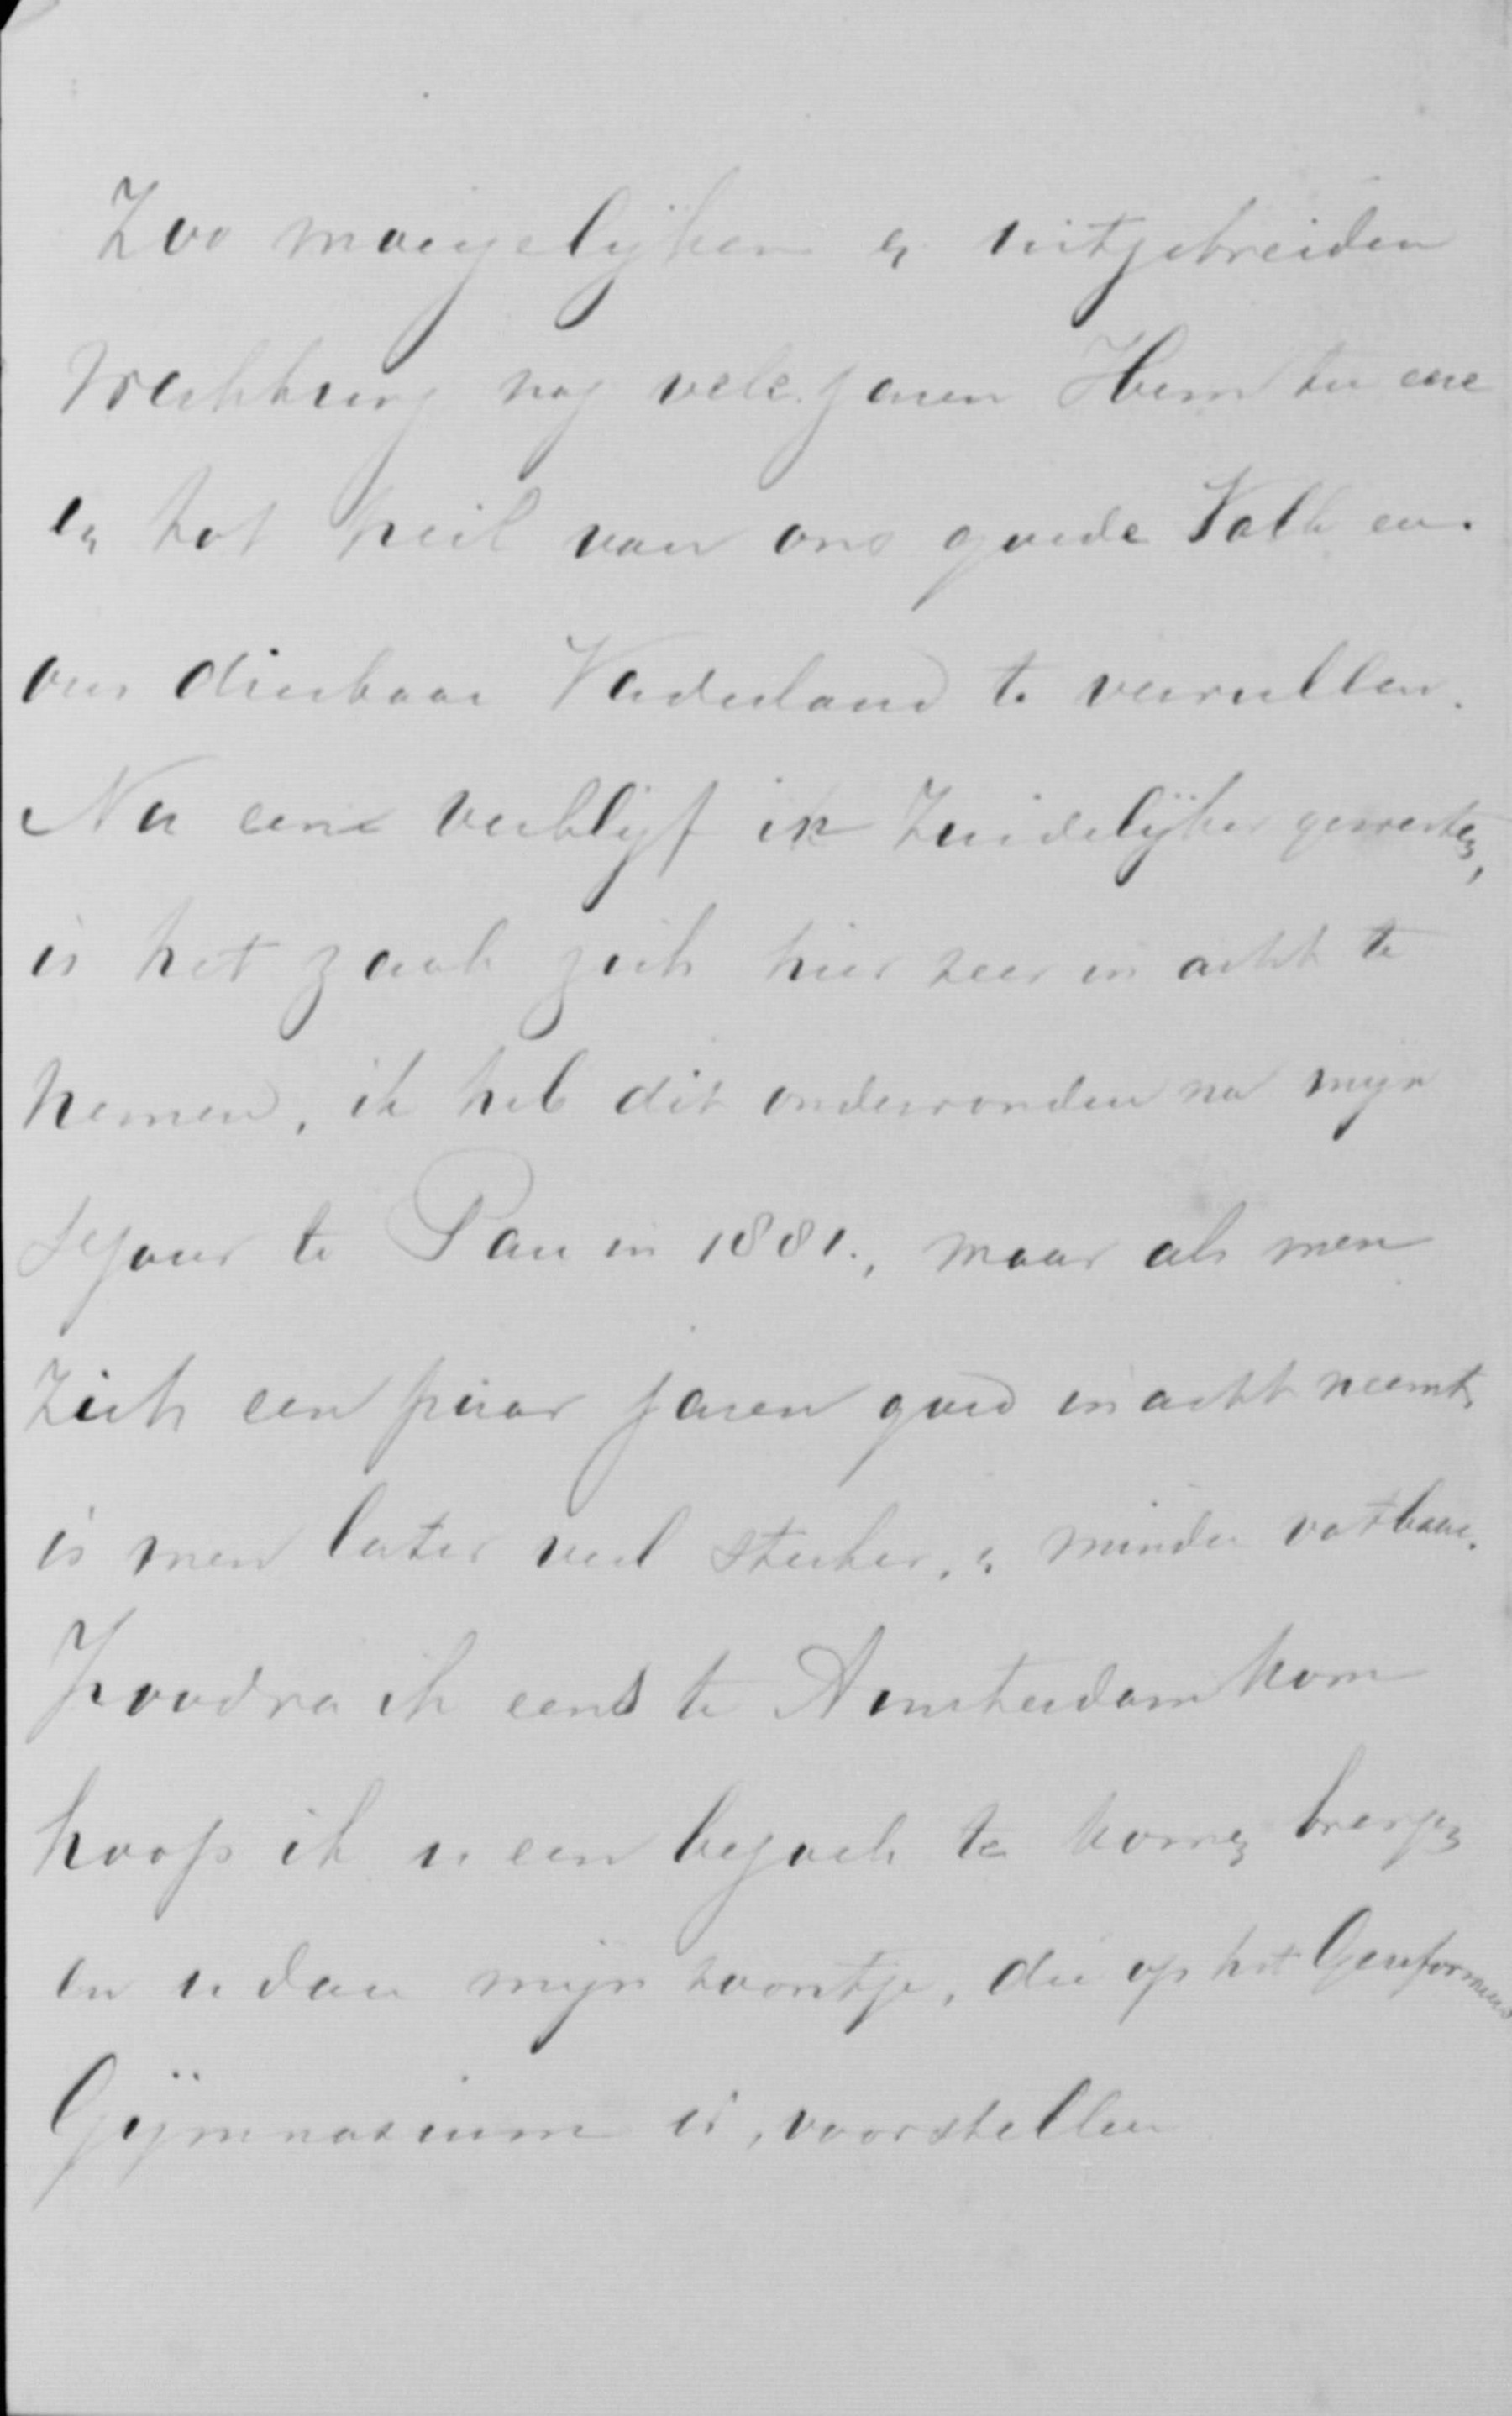 Zoo moeyelijken en uitgebreiden
werkkring nog vele jaren Hem ter eere
en tot heil van ons goede Volk en
ons dierbaar Vaderland te vervullen.
Na eene verblijf in Zuidelijker gewesten,
is het zaak zich hier zeer in acht te
nemen, ik heb dit ondervonden na mijn
sejour te Pau in 1881., maar als men
zich een paar jaren goed in acht neemt
is men later veel sterker, en minder vatbaar.
Zoodra ik eens te Amsterdam kom
hoop ik u een bezoek te komen brengen
en u dan mijn zoontje, die op het Gereformeerd
Gÿmnasium is, voorstellen